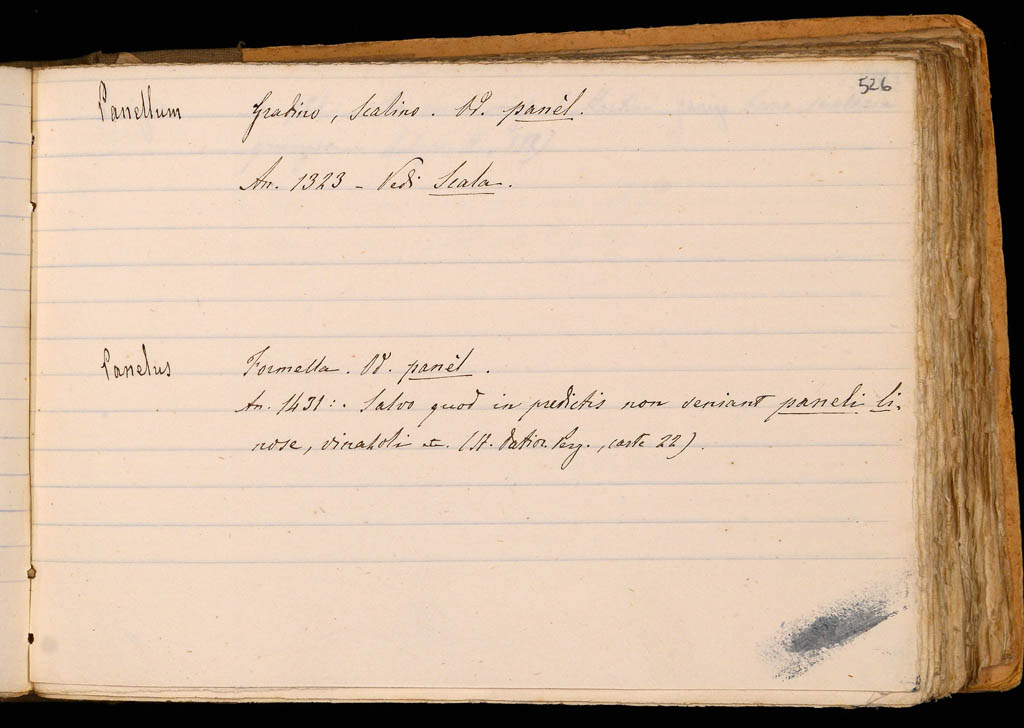 526
Panellum Gradino, Scalino. Od. panèl.
An. 1323 - Vedi Scala.
Panelus Formella. Od. panèl.
An. 1431:. Salvo quod in predictis non veniant paneli li-
nose, vinazoli etc. (St. Datior. Berg., carte 22).